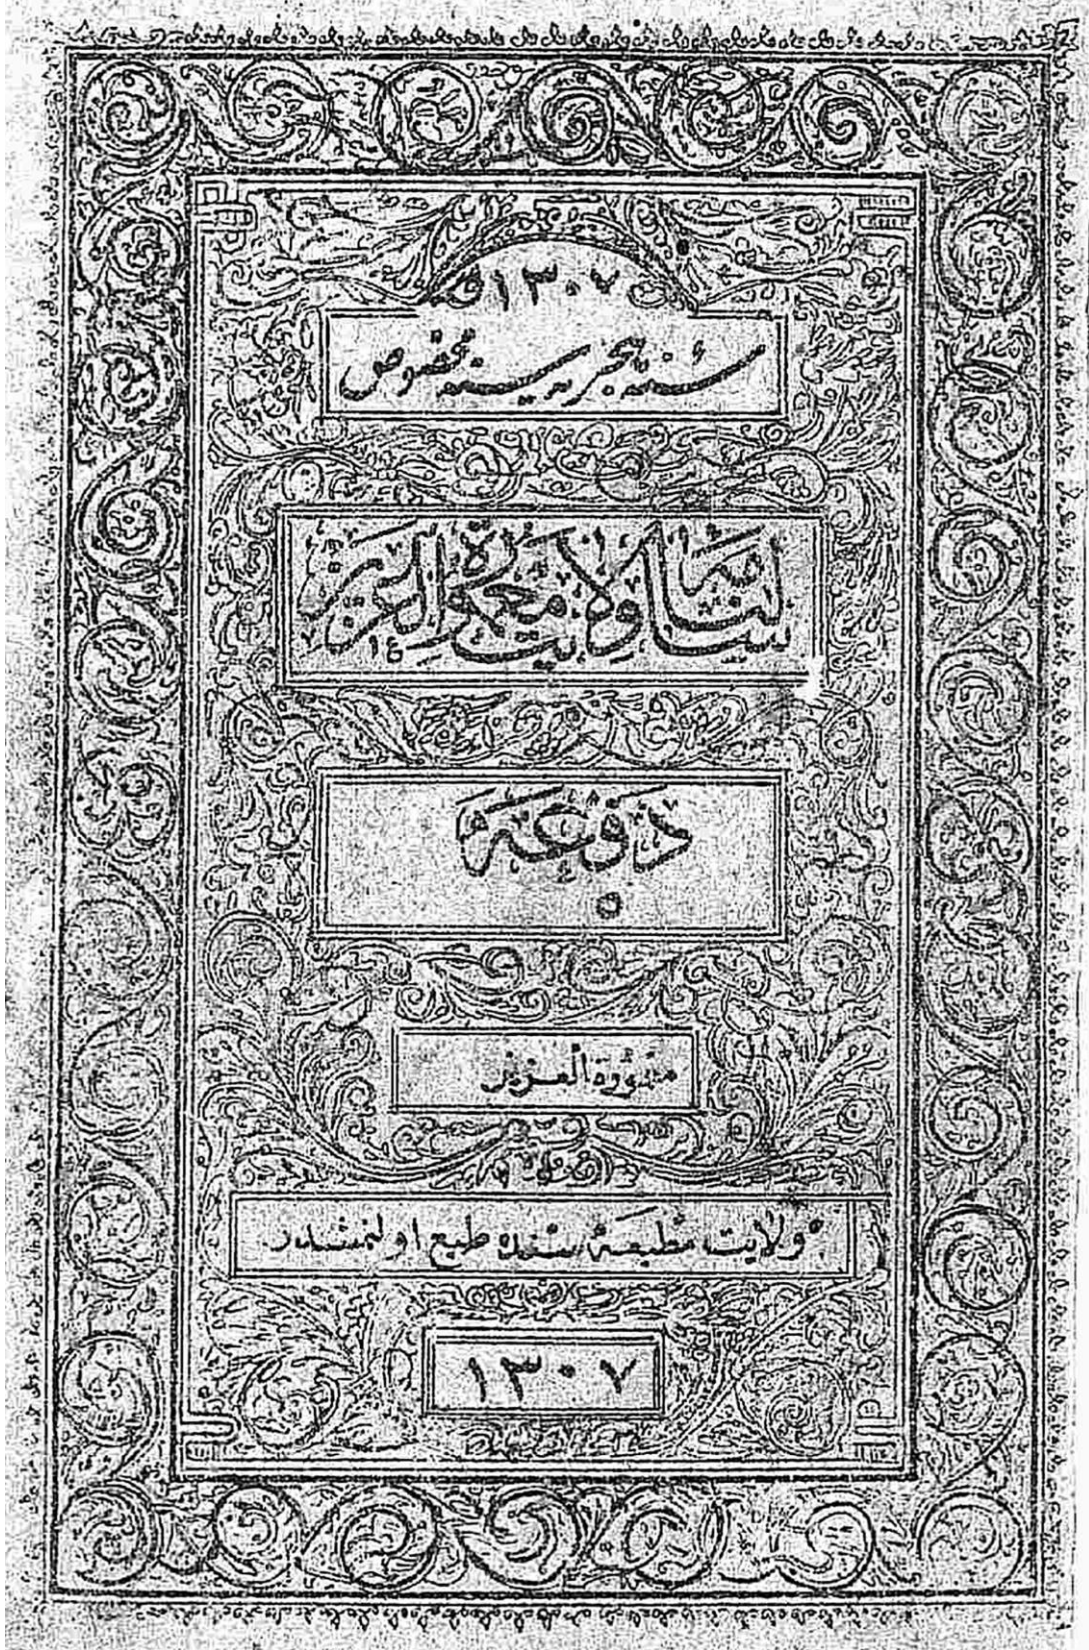 ١٣٠٧
سنهٔ هجریه‌سنه مخصوص
سالنامهٔ ولایت معمورة العزیز
دفعه
٥
معمورة العزیز
ولایت مطبعه‌سنده طبع اولنمشدر
١٣٠٧